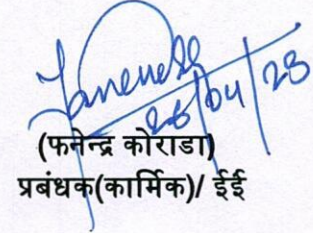 26/04/23
(फनेन्द्र कोराडा)
प्रबंधक(कार्मिक)/ ईई